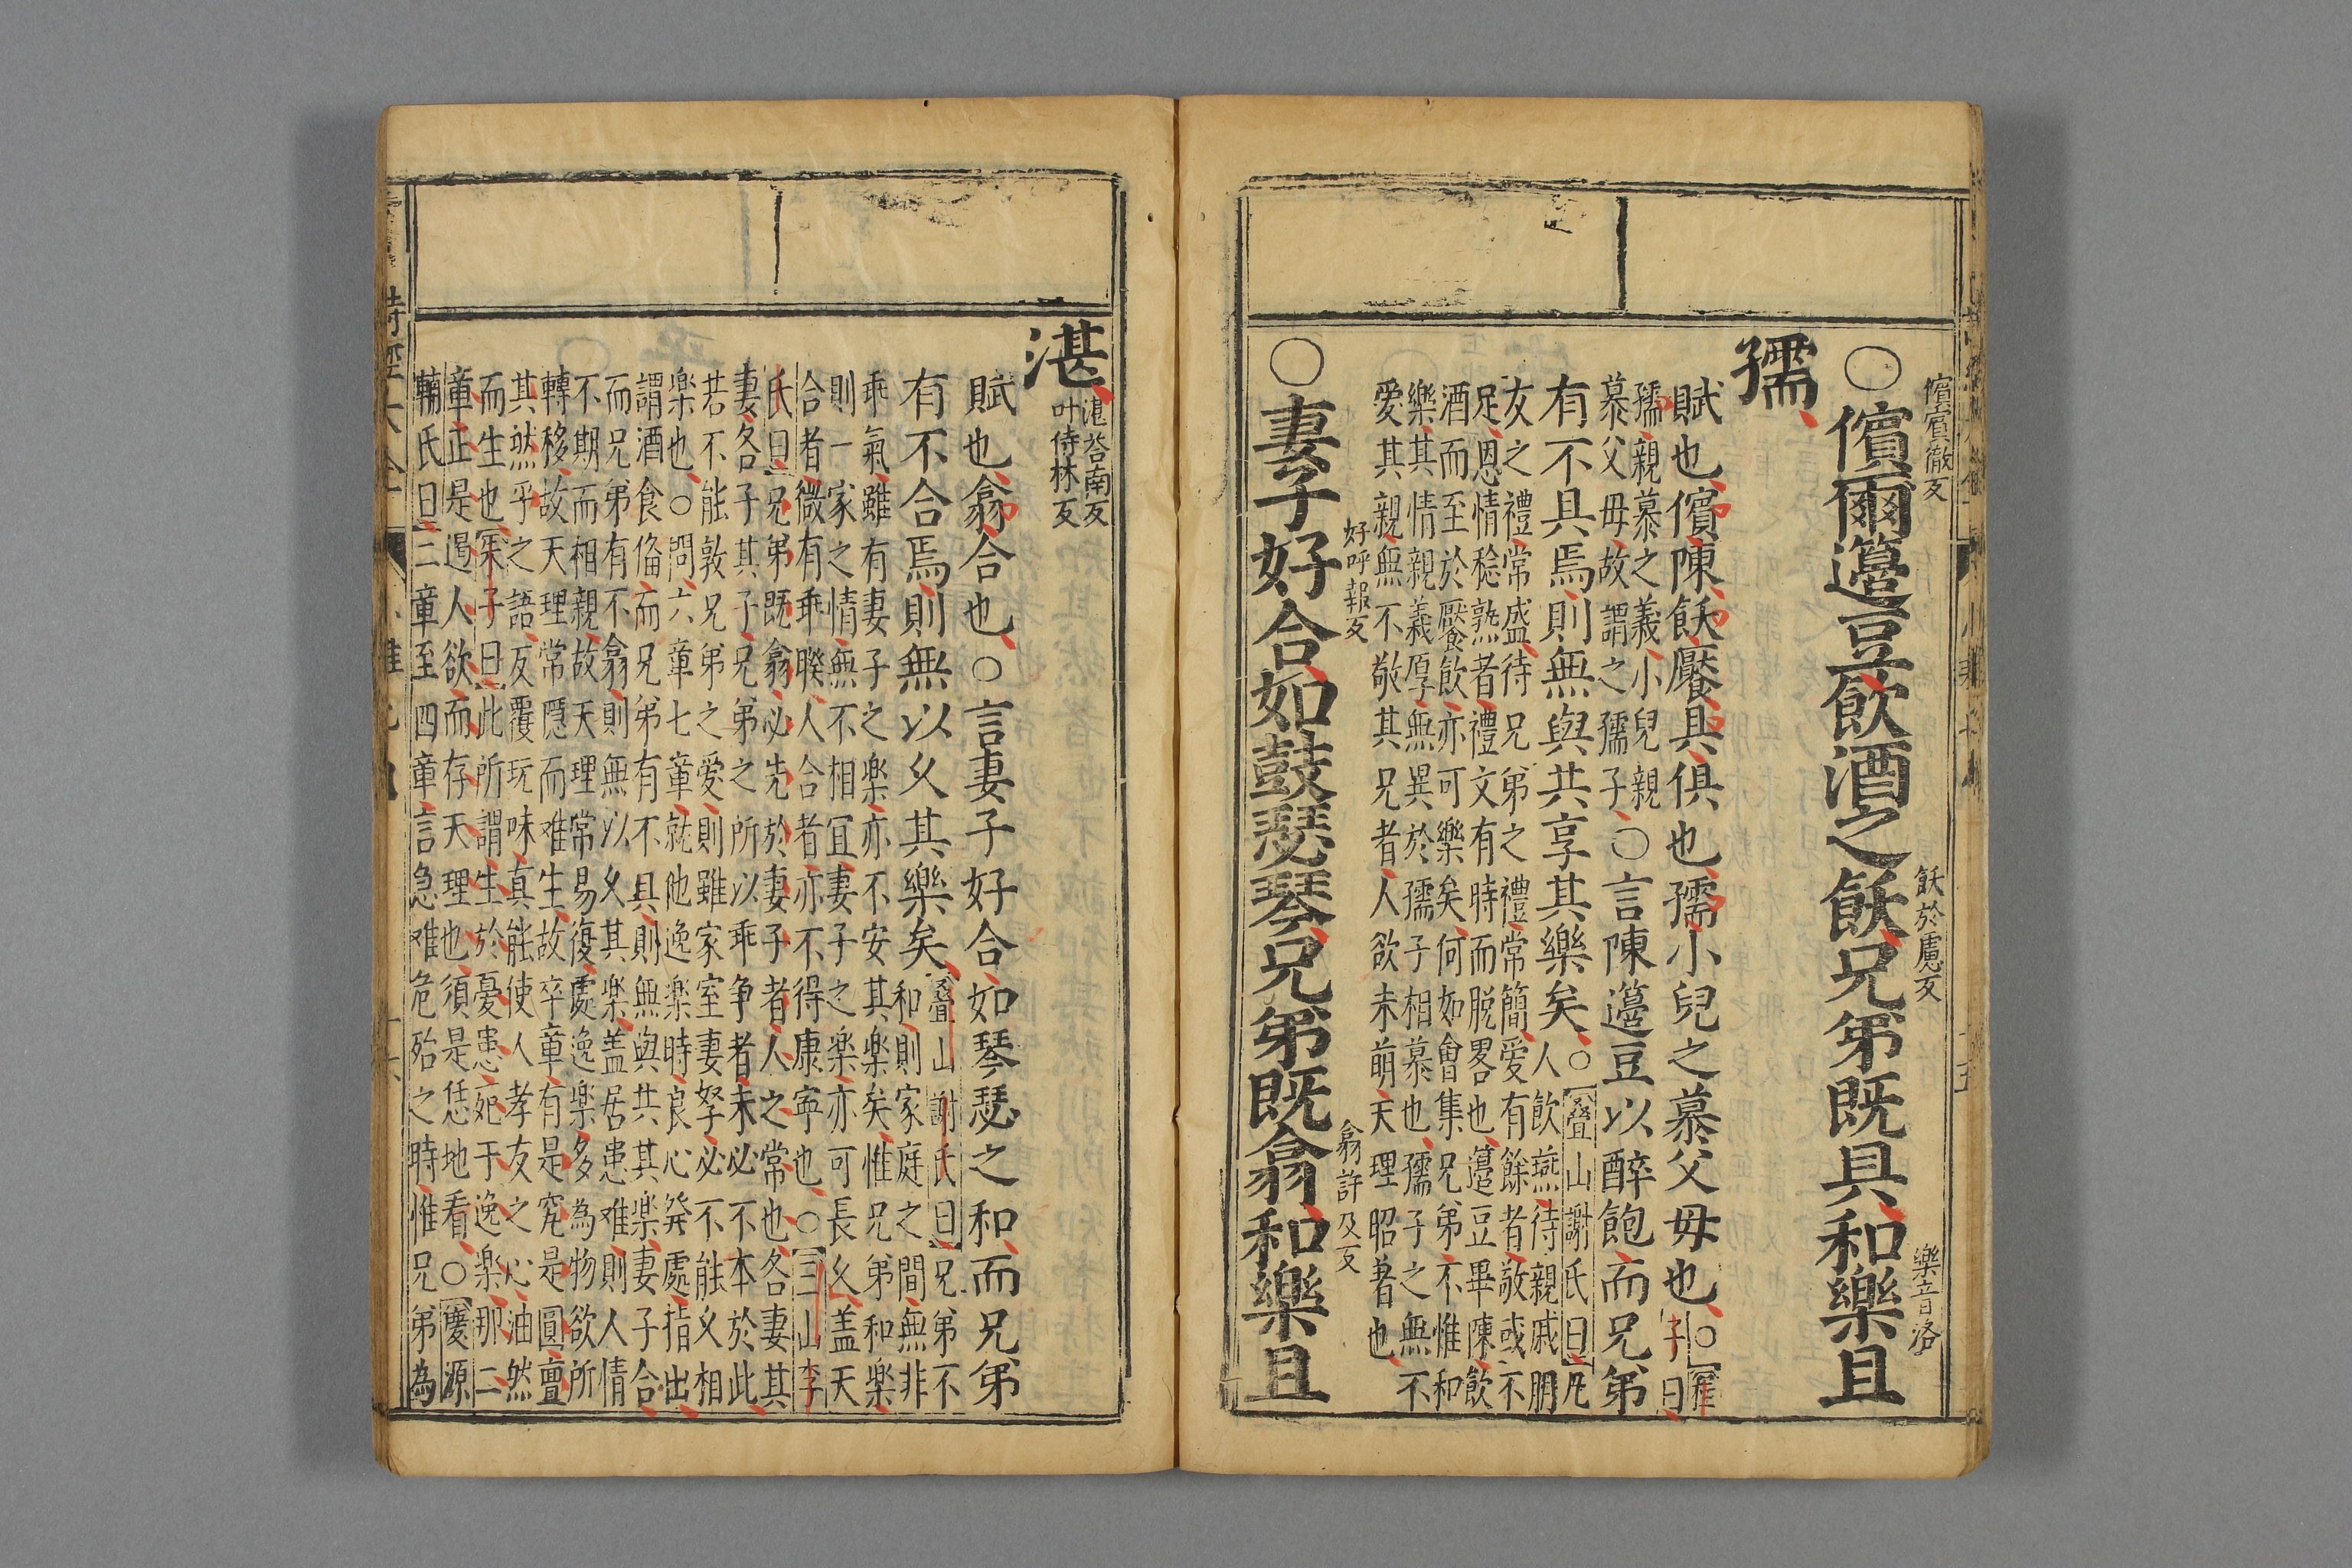 ○儐爾籩豆飲酒之飫兄弟既具和樂且
儐賓徹反
飫於慮反
樂音洛
孺
賦也儐陳飫饜具俱也孺小兒之慕父母也○
子曰
孺親慕之義小兒親
慕父母故謂之孺子○言陳籩豆以醉飽而兄弟
有不具焉則無與共享其樂矣○
疊山謝氏曰凡
人飲燕待親戚朋
友之禮常盛待兄弟之禮常簡愛有餘者敬或不
足恩情稔熟者禮文有時而脫畧也籩豆畢陳飲
酒而至於饜飲亦可樂矣何如會集兄弟不惟和
樂其情親義厚無異於孺子相慕也孺子之無不
愛其親無不敬其兄者人欲未萌天理昭著也
○妻子好合如鼓瑟琴兄弟既翕和樂且
好呼報反
翕許及反
湛
湛荅南反
叶侍林反
賦也翕合也○言妻子好合如琴瑟之和而兄弟
有不合焉則無以久其樂矣
疊山謝氏曰兄弟不
和則家庭之間無非
乖氣雖有妻子之楽亦不安其楽矣惟兄弟和楽
則一家之情無不相宜妻子之楽亦可長久盖天
合者微有乖睽人合者亦不得康寧也○三山李
氏曰兄弟既翕必先於妻子者人之常也各妻其
妻各子其子兄弟之所以乖争者未必不本於此
若不能敦兄弟之愛則雖家室妻孥必不能久相
楽也○問六章七章就他逸楽時良心発處指出
謂酒食俻而兄弟有不具則無與共其楽妻子合
而兄弟有不翕則無以久其楽盖居患难則人情
不期而相親故天理常易復處逸楽多為物欲所
轉移故天理常隱而难生故卒章有是究是圖亶
其然乎之語反覆玩味真能使人孝友之心油然
而生也朱子曰此所謂生於憂患死于逸楽那二
章正是遏人欲而存天理也須是恁地看○慶源
輔氏曰二章至四章言急难危殆之時惟兄弟為